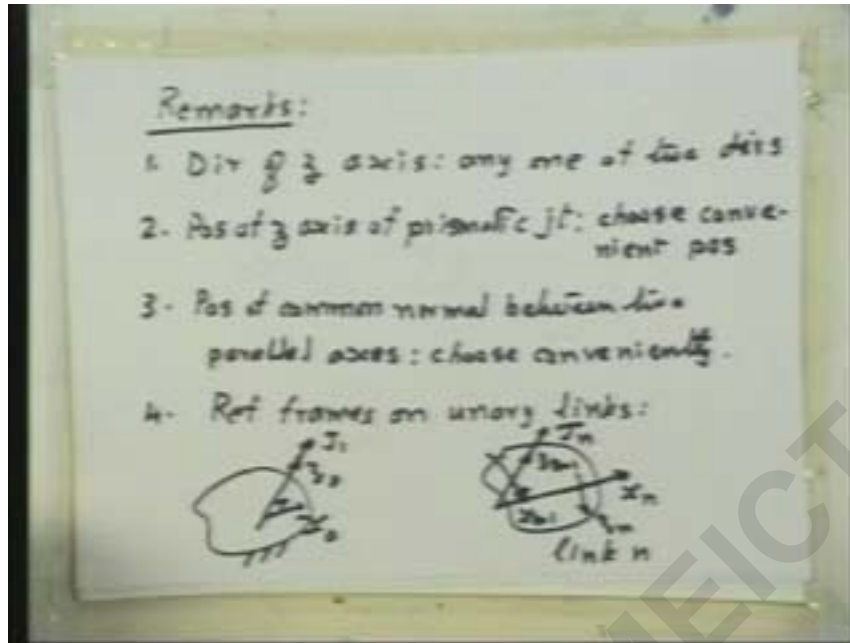 Remarks:
1. Dir of z axis: any one of two dirs
2. Pos of z axis of prismatic jt: choose conve-
nient pos
3. Pos of common normal between two
parallel axes: choose conveniently.
4. Ref frames on unary links:
J1 Jn
z0 zn-1
x0 xn-1 xn
zn
link n
MEICT